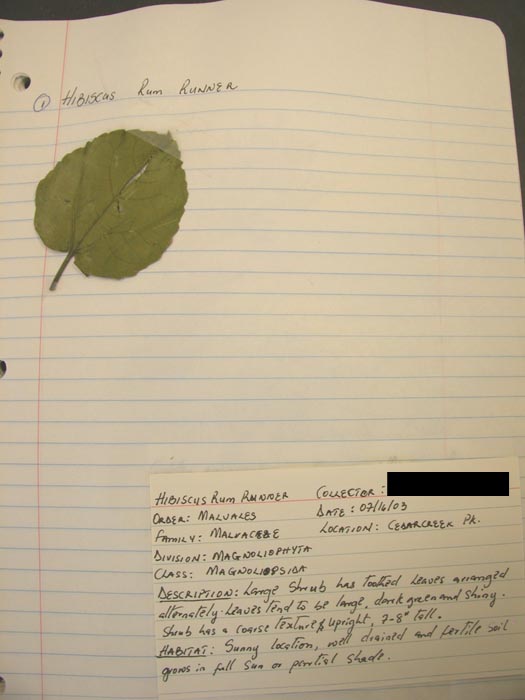 ① HIBISCUS RUM RUNNER
HIBISCUS RUM RUNNER COLLECTOR:
ORDER: MALVALES DATE: 07/16/03
FAMILY: MALVACEBE LOCATION: CEDARCREEK PK.
DIVISION: MAGNOLIOPHYTA
CLASS: MAGNOLIOPSIDA
DESCRIPTION: Large Shrub has toothed leaves arranged
alternately. Leaves tend to be large, dark green and shiny.
Shrub has a coarse texture & upright, 7-8" tall.
HABITAT: Sunny location, well drained and fertile soil
grows in full sun or partial shade.